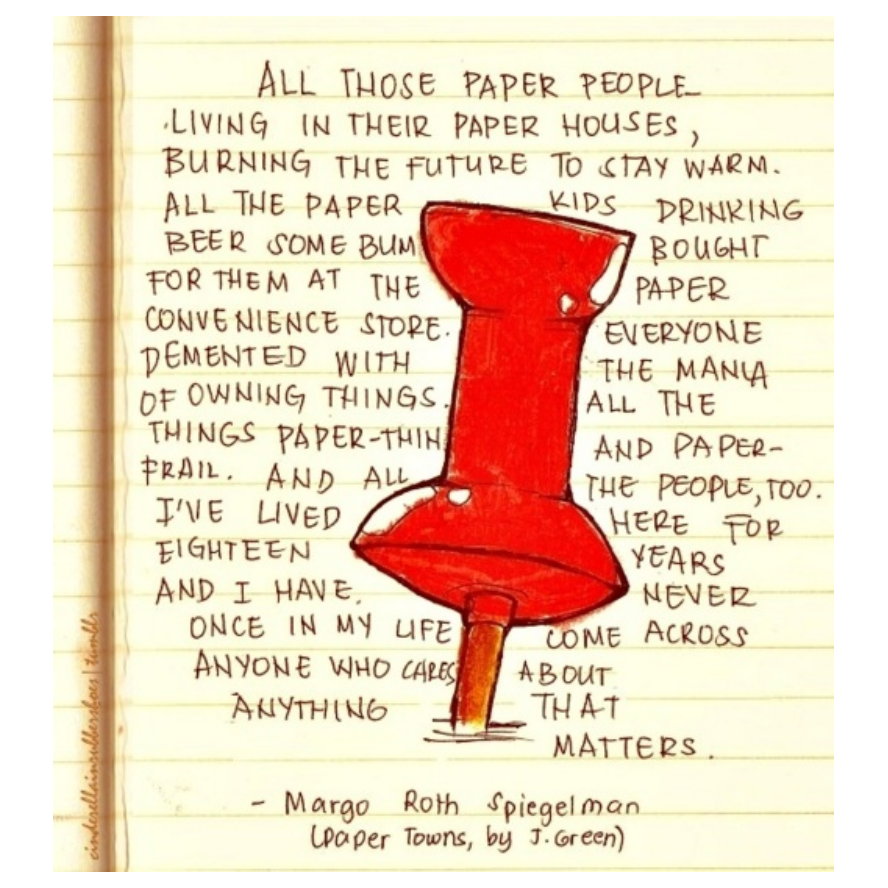 ALL THOSE PAPER PEOPLE
LIVING IN THEIR PAPER HOUSES,
BURNING THE FUTURE TO STAY WARM.
ALL THE PAPER KIDS DRINKING
BEER SOME BUM BOUGHT
FOR THEM AT THE PAPER
CONVENIENCE STORE. EVERYONE
DEMENTED WITH THE MANIA
OF OWNING THINGS. ALL THE
THINGS PAPER-THIN AND PAPER-
FRAIL. AND ALL THE PEOPLE, TOO.
I'VE LIVED HERE FOR
EIGHTEEN YEARS
AND I HAVE NEVER
ONCE IN MY LIFE COME ACROSS
ANYONE WHO CARES ABOUT
ANYTHING THAT
MATTERS.
- Margo Roth Spiegelman
(Paper Towns, by J. Green)
cinderellainrubbershoes | tumblr